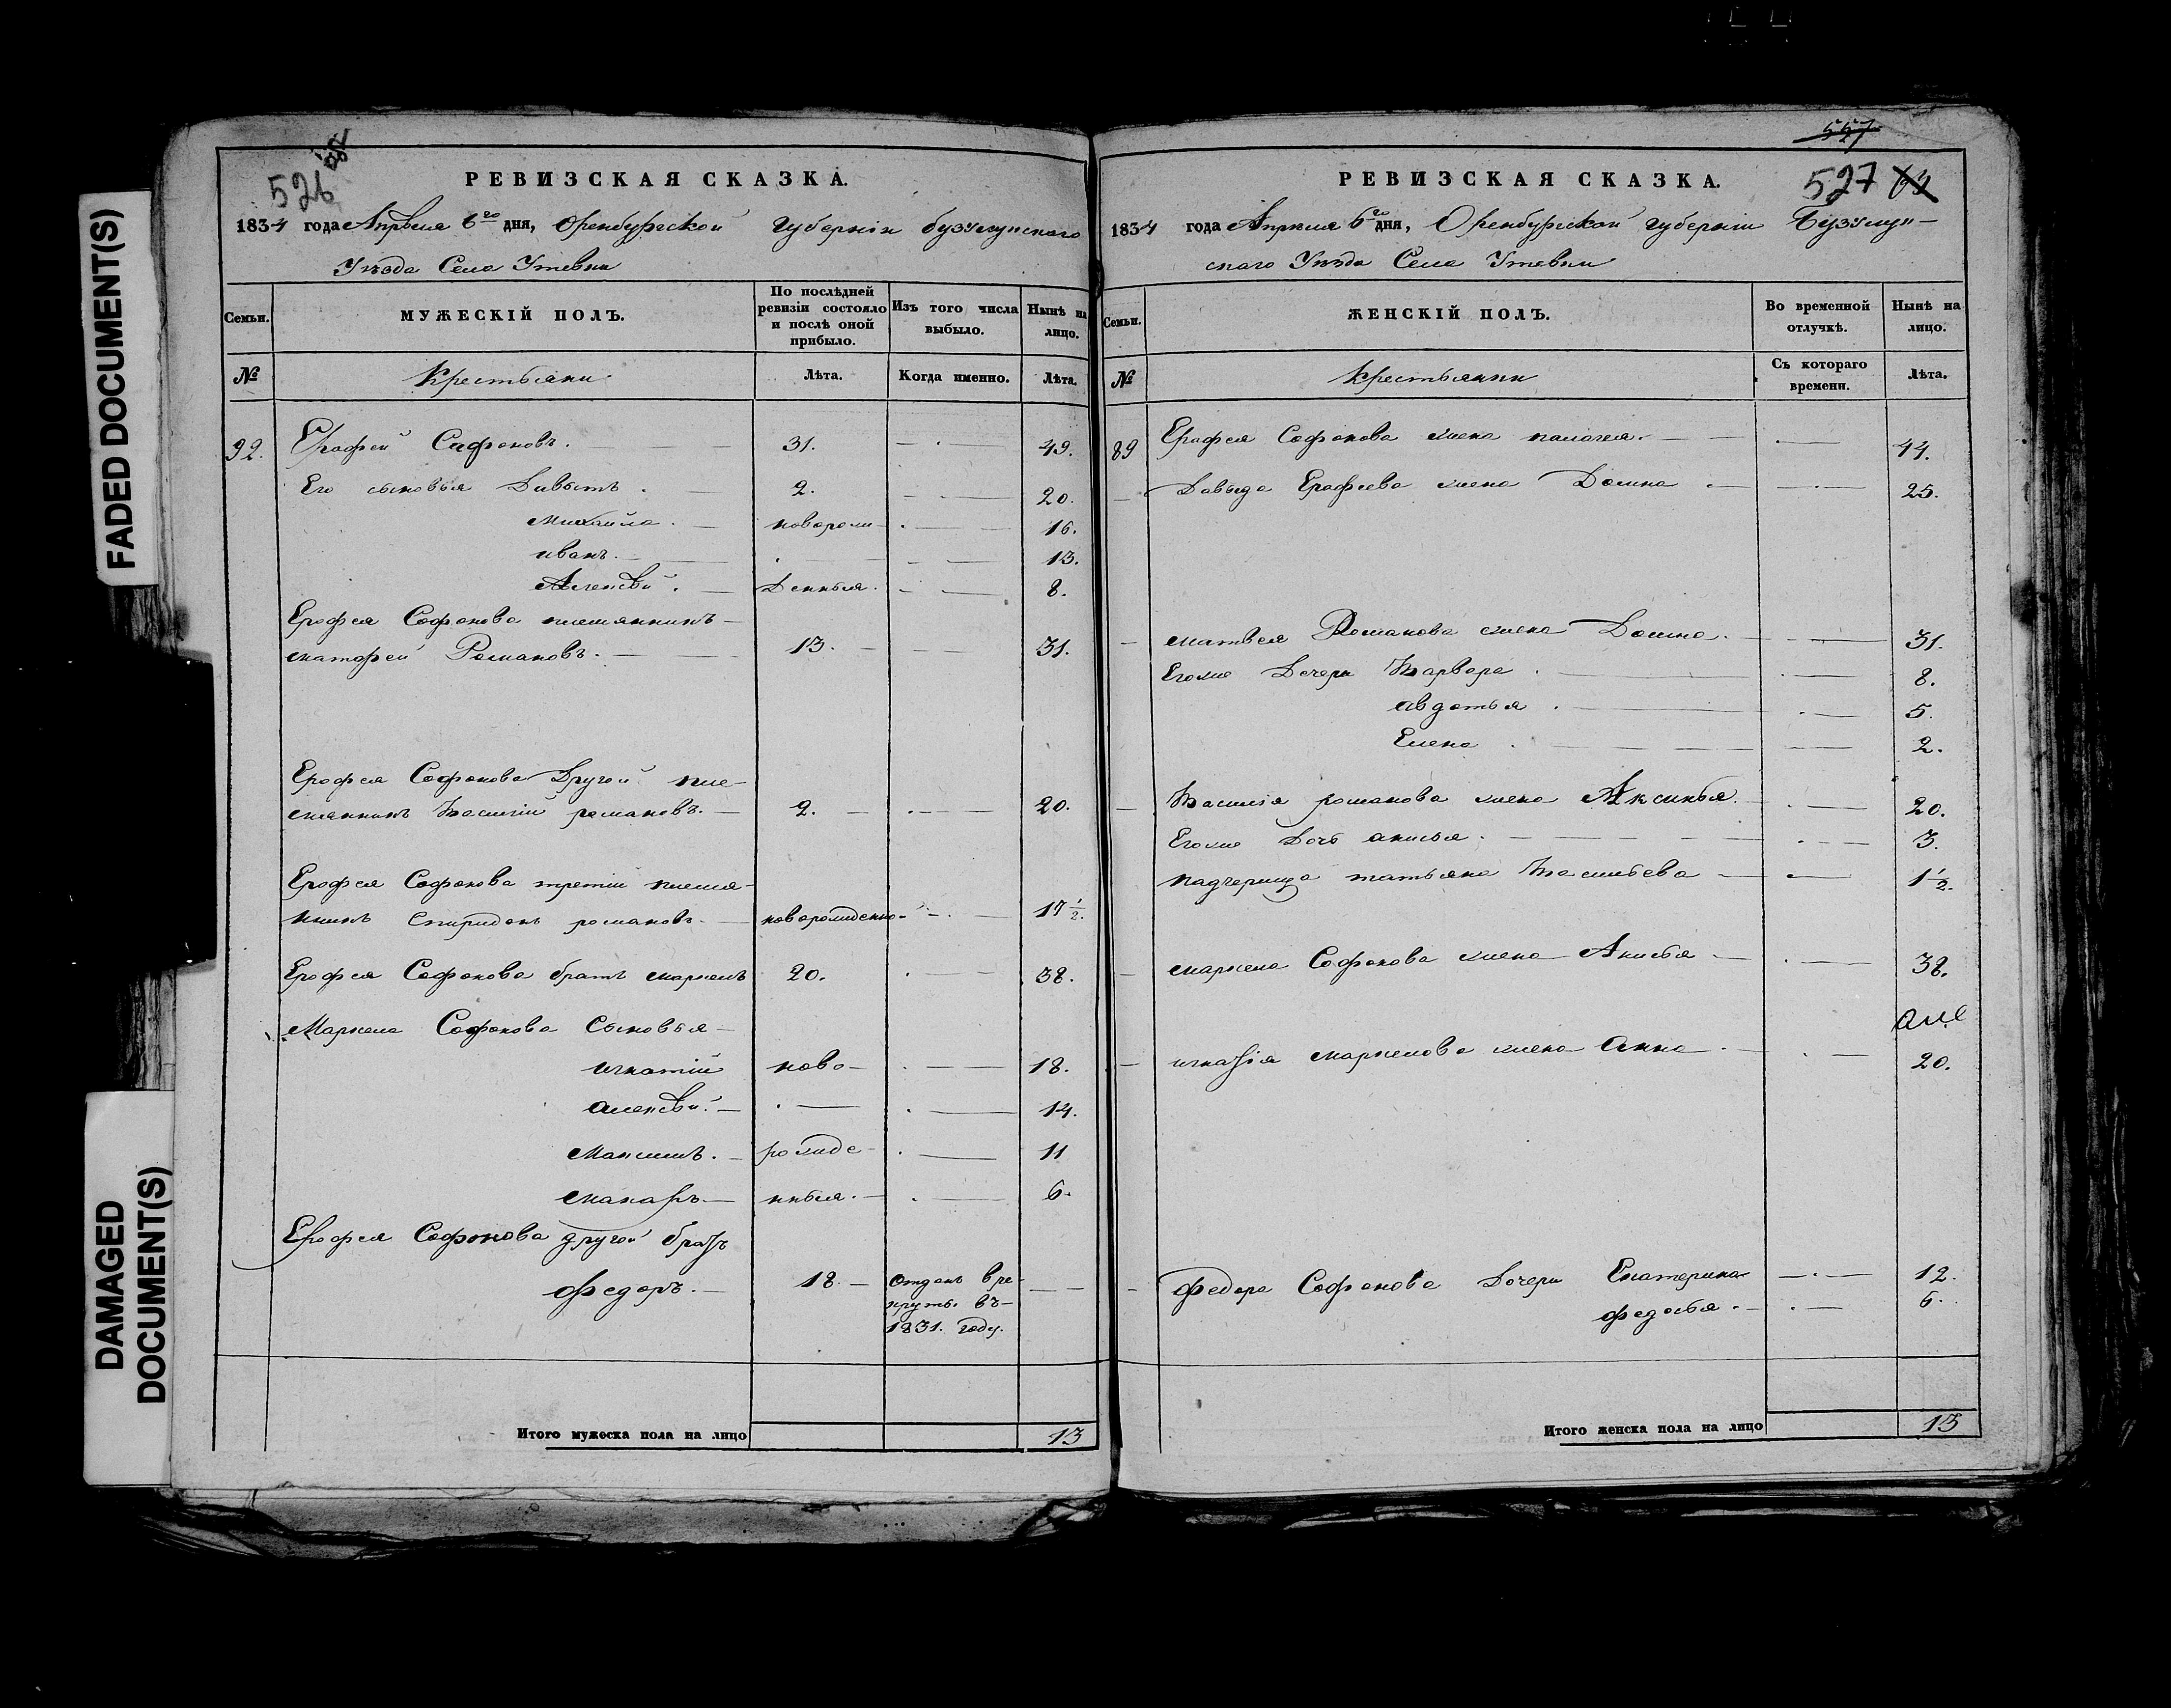 FADED DOCUMENT(S)
DAMAGED
DOCUMENT(S)
526
РЕВИЗСКАЯ СКАЗКА.
1834 года Апреля 6го дня, Оренбургской Губернiи бузулукскаго
Уезда Села Утевки
Семьи. МУЖЕСКІЙ ПОЛЪ. По послѣдней ревизіи состояло и послѣ оной прибыло. Изъ того числа выбыло. Нынѣ на лицо.
№ Крестьяни Лѣта. Когда именно. Лѣта.
92. Ерофей Сафоновъ. 31. 49.
Его сыновья Давытъ. 2. 20.
Михайла. новорож- 16.
иванъ. 13.
Алексей. Денныя. 8.
Ерофея Софонова племянникъ
матфей Романовъ. 13. 31.
Ерофея Софонова Другой пле-
мянникъ Василий романовъ. 2. 20.
Ерофея Софонова третiй племя-
нникъ Спиридонъ романовъ. новорожденно- 17 1/2.
Ерофея Софонова братъ маркелъ 20. 38.
Маркела Софонова Сыновья
игнатiй ново- 18.
алексей. 14.
Максимъ. рожде- 11
макаръ. нныя. 6.
Ерофея Софонова другой братъ
федоръ. 18. Отданъ в ре-
круты въ
1831. году.
Итого мужеска пола на лицо 13
557
527 64
РЕВИЗСКАЯ СКАЗКА.
1834 года Апреля 6го дня, Оренбургской губернiи Бузулук-
скаго Уезда Села Утевки
Семьи. ЖЕНСКІЙ ПОЛЪ. Во временной отлучкѣ. Нынѣ на лицо.
№ Крестьянки Съ котораго времени. Лѣта.
89 Ерофея Софонова жена палагея. 44.
Давыда Ерофеева жена Домна 25.
матвея Романова жена Домна. 31.
Егоже Дочери Варвара. 8.
авдотья. 5.
Елена. 2.
Василiя романова жена Аксинья. 20.
Егоже Дочь анисья. 3.
падчерица татьяна Васильева 1 1/2.
маркела Софонова жена Анисья 38.
игнатiя маркелова жена Анна. 20.
Федора Софонова Дочери Екатерина 12.
федосья. 6.
Итого женска пола на лицо 13